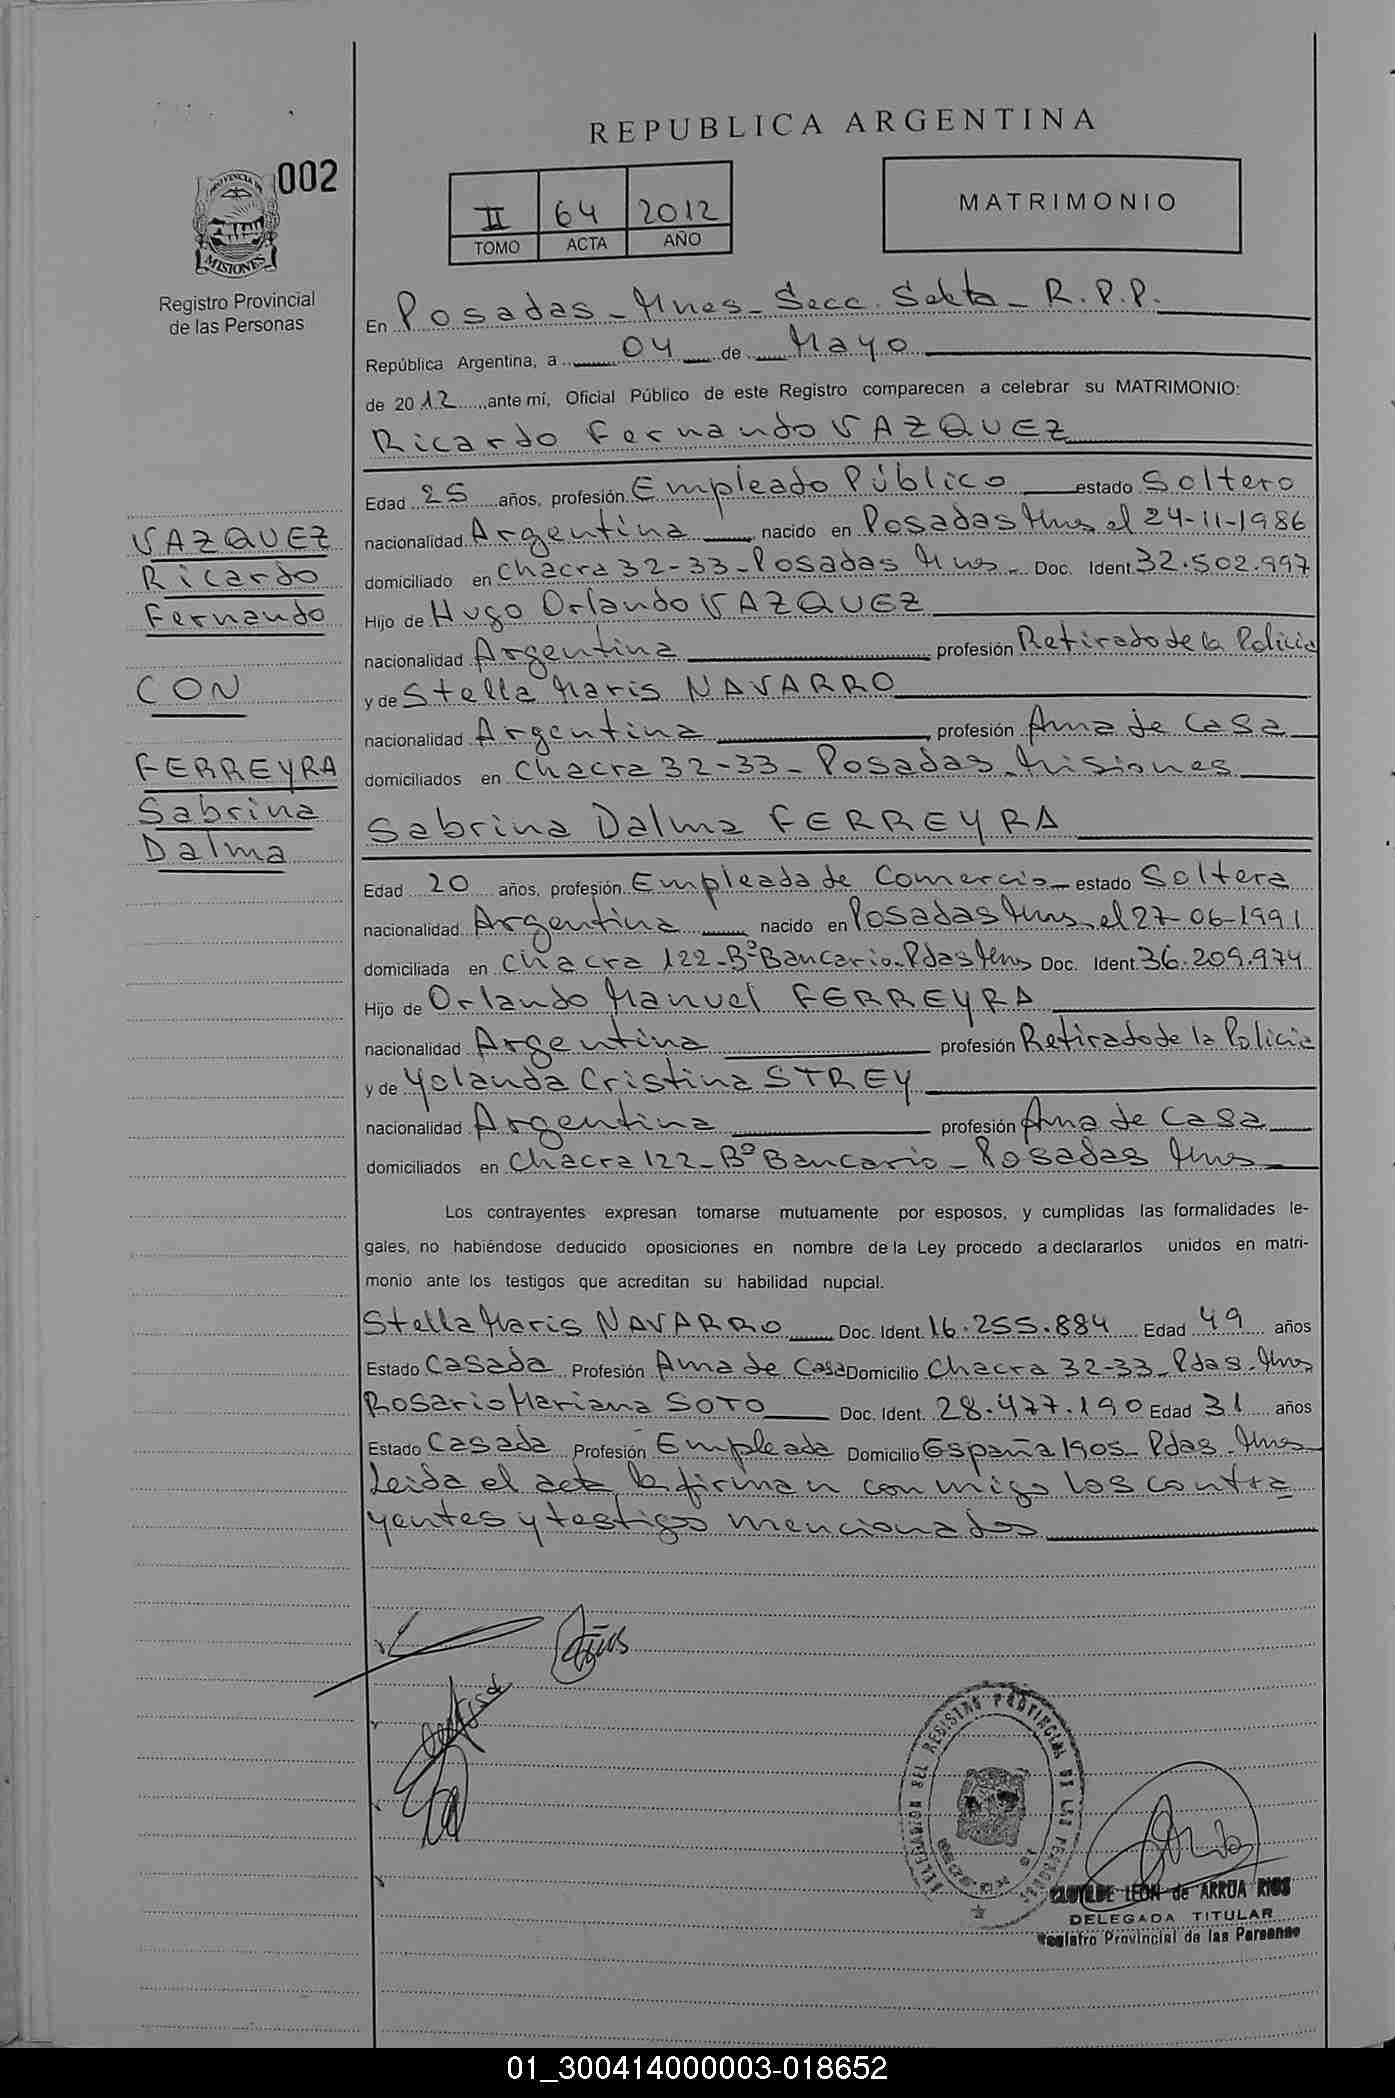 REPUBLICA ARGENTINA
002
PROVINCIA DE
MISIONES
Registro Provincial
de las Personas
II 64 2012
TOMO ACTA AÑO
MATRIMONIO
En Posadas - Mnes - Secc. Sexta - R.P.P.
República Argentina, a 04 de Mayo
de 2012 ,ante mí, Oficial Público de este Registro comparecen a celebrar su MATRIMONIO:
Ricardo Fernando VAZQUEZ
Edad 25 años, profesión Empleado Público estado Soltero
nacionalidad Argentina nacido en Posadas Mnes el 24-11-1986
domiciliado en Chacra 32-33 - Posadas Mnes - Doc. Ident. 32.502.997
Hijo de Hugo Orlando VAZQUEZ
nacionalidad Argentina profesión Retirado de la Policia
y de Stella Maris NAVARRO
nacionalidad Argentina profesión Ama de Casa
domiciliados en Chacra 32-33 - Posadas - Misiones
VAZQUEZ
Ricardo
Fernando
CON
FERREYRA
Sabrina
Dalma
Sabrina Dalma FERREYRA
Edad 20 años, profesión Empleada de Comercio - estado Soltera
nacionalidad Argentina nacido en Posadas Mnes el 27-06-1991
domiciliada en Chacra 122 - Bº Bancario - Pdas Mns Doc. Ident. 36.209.974
Hijo de Orlando Manuel FERREYRA
nacionalidad Argentina profesión Retirado de la Policia
y de Yolanda Cristina STREY
nacionalidad Argentina profesión Ama de Casa
domiciliados en Chacra 122 - Bº Bancario - Posadas Mnes
Los contrayentes expresan tomarse mutuamente por esposos, y cumplidas las formalidades le-
gales, no habiéndose deducido oposiciones en nombre de la Ley procedo a declararlos unidos en matri-
monio ante los testigos que acreditan su habilidad nupcial.
Stella Maris NAVARRO Doc. Ident. 16.255.884 Edad 49 años
Estado Casada Profesión Ama de Casa Domicilio Chacra 32-33 - Pdas - Mnes
Rosario Mariana SOTO Doc. Ident. 28.477.190 Edad 31 años
Estado Casada Profesión Empleada Domicilio España 1905 - Pdas - Mnes
Leida el acta, la firman conmigo los contra
yentes y testigos mencionados
DELEGACION DEL REGISTRO PROVINCIAL DE LAS PERSONAS
CLOTILDE LEON de ARRUA RIOS
DELEGADA TITULAR
Registro Provincial de las Personas
01_300414000003-018652